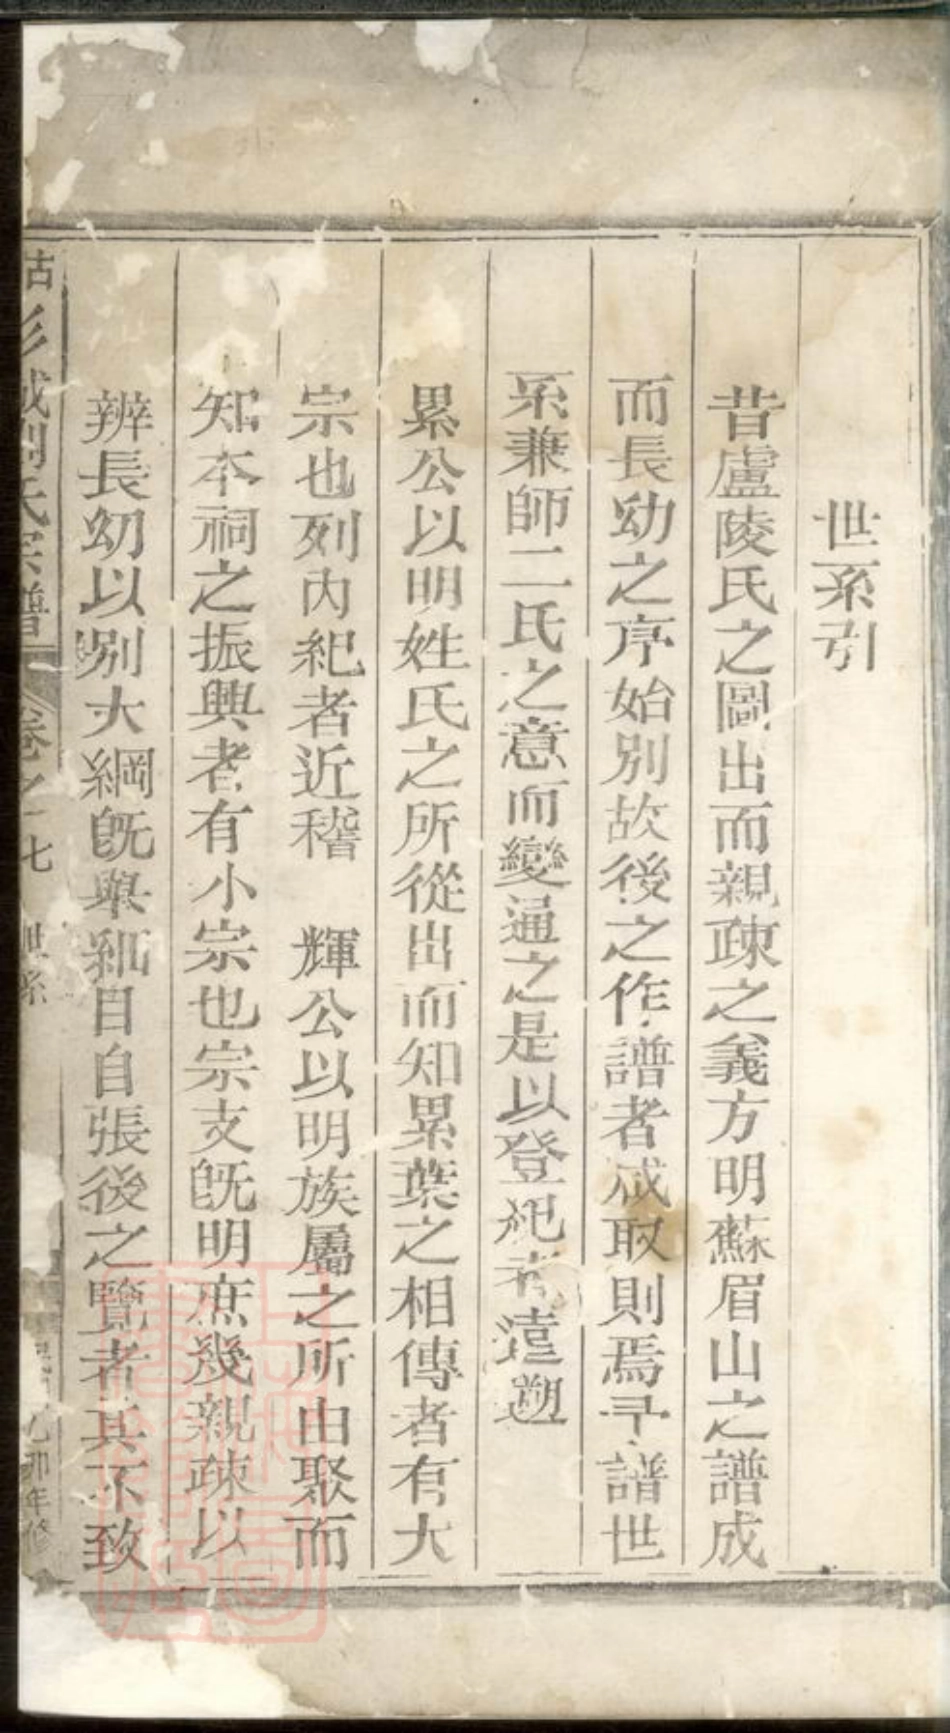 世系引
昔盧陵氏之圖出而親疎之義方明蘇眉山之譜成
而長幼之序始別故後之作譜者咸取則焉予譜世
系兼師二氏之意而變通之是以登祀者遠遡
累公以明姓氏之所從出而知累葉之相傳者有大
宗也列內紀者近稽 輝公以明族屬之所由聚而
知本祠之振興者有小宗也宗支既明庶幾親疎以
辨長幼以別大綱既舉細目自張後之覽者其不致
古彭城劉氏宗譜 卷之七 世系 乙卯年修